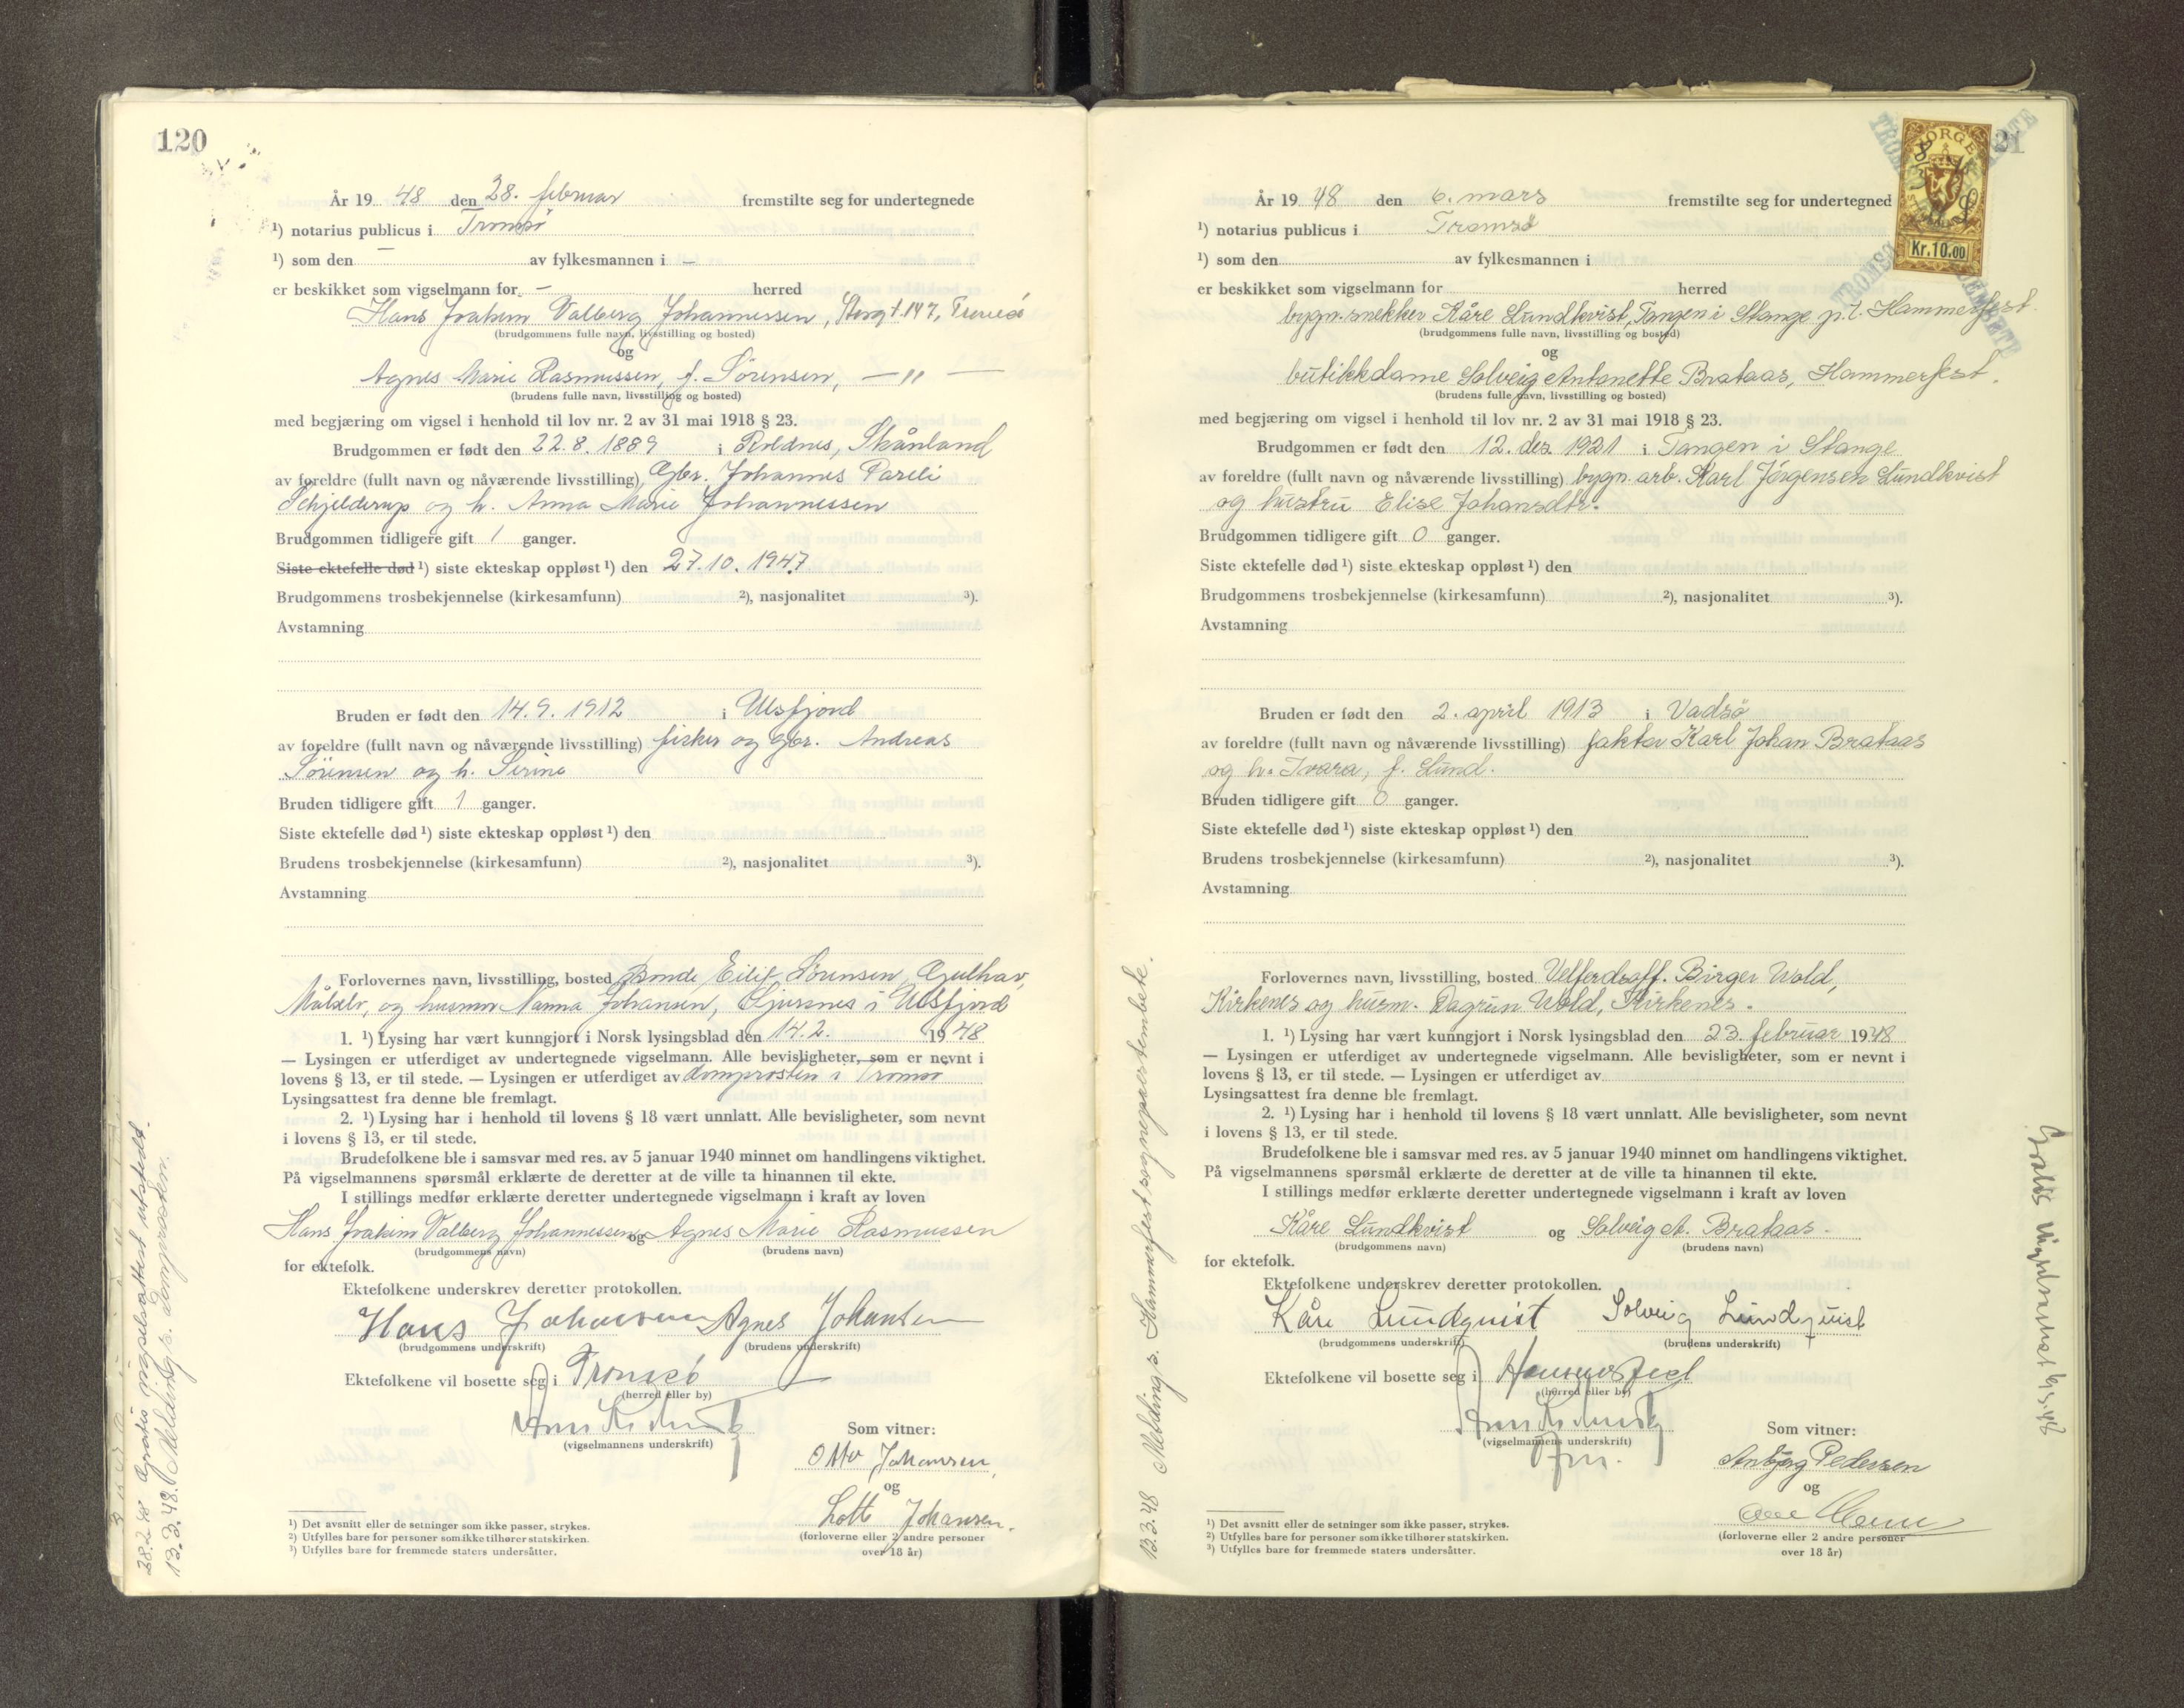 120
År 19 48 den 28. februar fremstilte seg for undertegnede
¹) notarius publicus i Tromsø
¹) som den — av fylkesmannen i —
er beskikket som vigselmann for — herred
Hans Joakim Valberg Johannessen, Storgt. 147, Tromsø
(brudgommens fulle navn, livsstilling og bosted)
og
Agnes Marie Rasmussen, f. Sørensen, — " —
(brudens fulle navn, livsstilling og bosted)
med begjæring om vigsel i henhold til lov nr. 2 av 31 mai 1918 § 23.
Brudgommen er født den 22.8.1889 i Renldnes, Skånland
av foreldre (fullt navn og nåværende livsstilling) Gbr. Johannes Pareli
Schjelderup og h. Anna Marie Johannessen
Brudgommen tidligere gift 1 ganger.
Siste ektefelle død ¹) siste ekteskap oppløst ¹) den 27.10.1947
Brudgommens trosbekjennelse (kirkesamfunn) ²), nasjonalitet ³).
Avstamning
Bruden er født den 14.9.1912 i Ulsfjord
av foreldre (fullt navn og nåværende livsstilling) fisker og gbr. Andreas
Sørensen og h. Serine
Bruden tidligere gift 1 ganger.
Siste ektefelle død ¹) siste ekteskap oppløst ¹) den
Brudens trosbekjennelse (kirkesamfunn) ²), nasjonalitet ³).
Avstamning
Forlovernes navn, livsstilling, bosted Bonde Eilif Sørensen, Gulhav,
Målselv, og husmor Nanna Johansen, Sjursnes i Ulsfjord
1. ¹) Lysing har vært kunngjort i Norsk lysingsblad den 14.2. 1948
— Lysingen er utferdiget av undertegnede vigselmann. Alle bevisligheter, som er nevnt i
lovens § 13, er til stede. — Lysingen er utferdiget av domprosten i Tromsø
Lysingsattest fra denne ble fremlagt.
2. ¹) Lysing har i henhold til lovens § 18 vært unnlatt. Alle bevisligheter, som nevnt
i lovens § 13, er til stede.
Brudefolkene ble i samsvar med res. av 5 januar 1940 minnet om handlingens viktighet.
På vigselmannens spørsmål erklærte de deretter at de ville ta hinannen til ekte.
I stillings medfør erklærte deretter undertegnede vigselmann i kraft av loven
Hans Joakim Valberg Johannessen og Agnes Marie Rasmussen
(brudgommens navn) (brudens navn)
for ektefolk.
Ektefolkene underskrev deretter protokollen.
Hans Johansen Agnes Johansen
(brudgommens underskrift) (brudens underskrift)
Ektefolkene vil bosette seg i Tromsø
(herred eller by)
(vigselmannens underskrift)
Som vitner:
Otto Johansen
og
Lotte Johansen.
(forloverne eller 2 andre personer
over 18 år)
¹) Det avsnitt eller de setninger som ikke passer, strykes.
²) Utfylles bare for personer som ikke tilhører statskirken.
³) Utfylles bare for fremmede staters undersåtter.
28.2.48 Gratis vigselsattest utstedt.
13.3.48. Melding s. domprosten.
NORGE
Kr. 10.00
År 19 48 den 6. mars fremstilte seg for undertegned
notarius publicus i Tromsø
¹) som den av fylkesmannen i
er beskikket som vigselmann for herred
bygn.snekker Kåre Lundkvist, Tangen i Stange p.t. Hammerfest.
(brudgommens fulle navn, livsstilling og bosted)
og
butikkdame Solveig Antonette Brataas, Hammerfest.
(brudens fulle navn, livsstilling og bosted)
med begjæring om vigsel i henhold til lov nr. 2 av 31 mai 1918 § 23.
Brudgommen er født den 12. des. 1921 i Tangen i Stange
av foreldre (fullt navn og nåværende livsstilling) bygn. arb. Karl Jørgensen Lundkvist
og hustru Elise Johansdtr.
Brudgommen tidligere gift 0 ganger.
Siste ektefelle død ¹) siste ekteskap oppløst ¹) den
Brudgommens trosbekjennelse (kirkesamfunn) ²), nasjonalitet ³).
Avstamning
Bruden er født den 2. april 1913 i Vadsø
av foreldre (fullt navn og nåværende livsstilling) faktor Karl Johan Brataas
og h. Ivara, f. Lund.
Bruden tidligere gift 0 ganger.
Siste ektefelle død ¹) siste ekteskap oppløst ¹) den
Brudens trosbekjennelse (kirkesamfunn) ²), nasjonalitet ³).
Avstamning
Forlovernes navn, livsstilling, bosted Velferdsoff. Birger Wold,
Kirkenes og husm. Dagrun Wold, Kirkenes.
1. ¹) Lysing har vært kunngjort i Norsk lysingsblad den 23. februar 1948
— Lysingen er utferdiget av undertegnede vigselmann. Alle bevisligheter, som er nevnt i
lovens § 13, er til stede. — Lysingen er utferdiget av
Lysingsattest fra denne ble fremlagt.
2. ¹) Lysing har i henhold til lovens § 18 vært unnlatt. Alle bevisligheter, som nevnt
i lovens § 13, er til stede.
Brudefolkene ble i samsvar med res. av 5 januar 1940 minnet om handlingens viktighet.
På vigselmannens spørsmål erklærte de deretter at de ville ta hinannen til ekte.
I stillings medfør erklærte deretter undertegnede vigselmann i kraft av loven
Kåre Lundkvist og Solveig A. Brataas.
(brudgommens navn) (brudens navn)
for ektefolk.
Ektefolkene underskrev deretter protokollen.
Kåre Lundquist Solveig Lundquist
(brudgommens underskrift) (brudens underskrift)
Ektefolkene vil bosette seg i Hammerfest
(herred eller by)
(vigselmannens underskrift)
Som vitner:
Anbjørg Pedersen
og
(forloverne eller 2 andre personer
over 18 år)
¹) Det avsnitt eller de setninger som ikke passer, strykes.
²) Utfylles bare for personer som ikke tilhører statskirken.
³) Utfylles bare for fremmede staters undersåtter.
13.3.48 Melding s. Hammerfest sogneprestembete.
Gratis vigselsattest 6/3-48